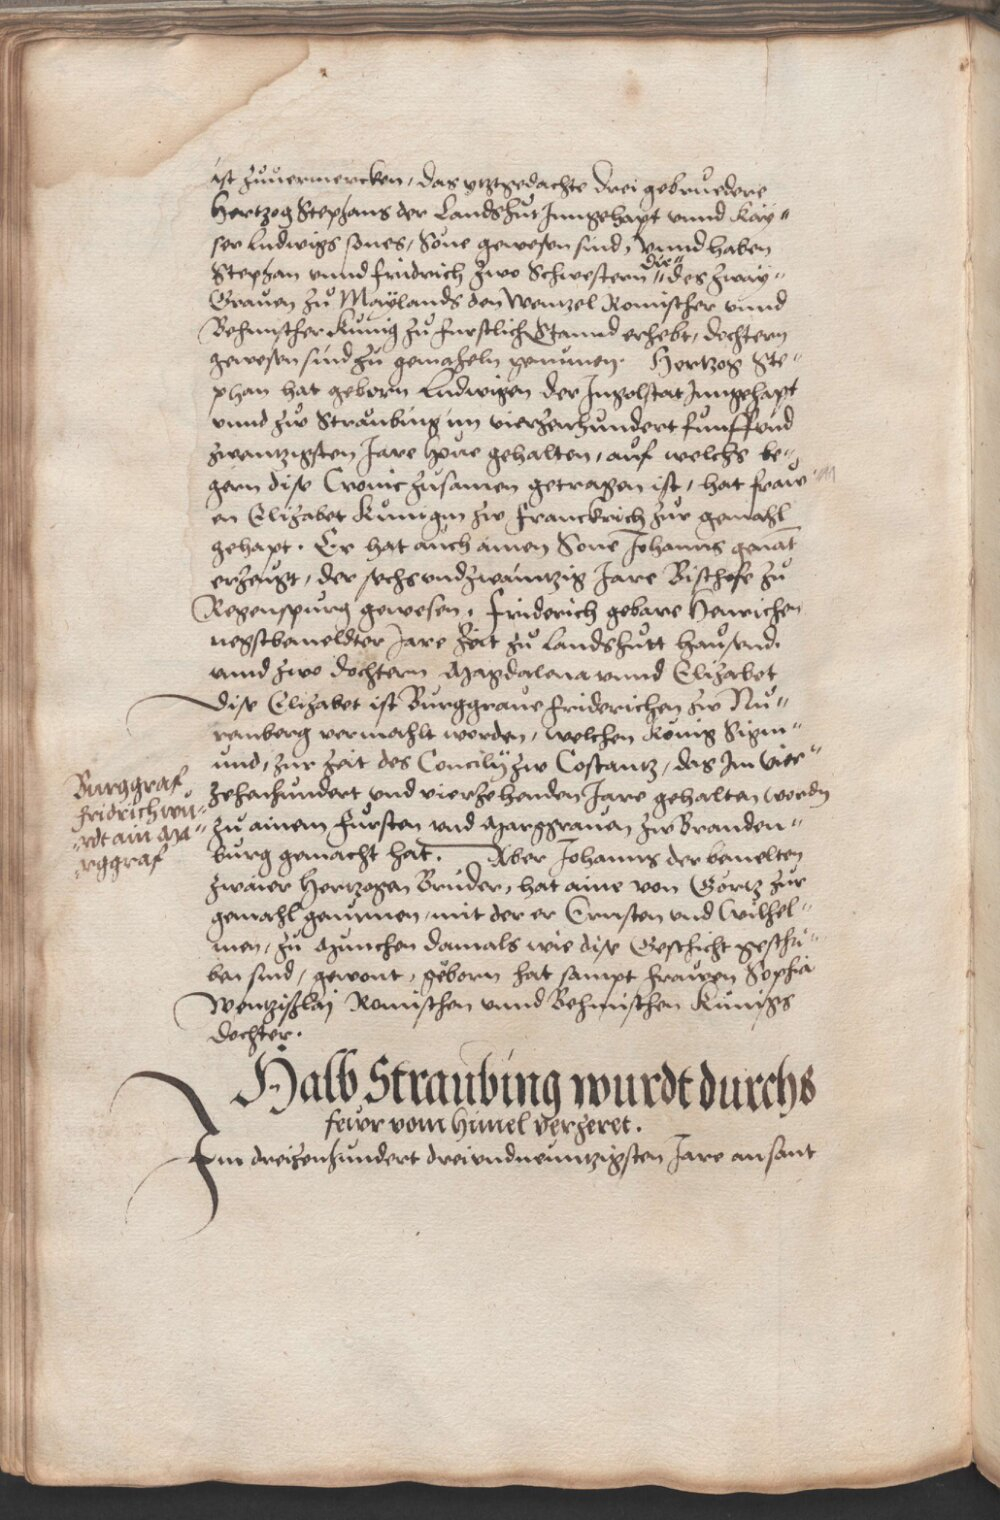 ist zuuermercken, das ytztgedachte drei gebruedere
Hertzog Stephans der Landshut Inngehapt vnnd Kay"
ser Ludwigs sones, Söne gewesen sind, Vnnd haben
Stephan vnnd fridrich zwo Schwestern die" des zway"
Grauen zů Maÿlands den Wentzel Romischer vnnd
Behmischer Kunig zů furstlich Stannd erhebt, dochtern
gewesen sind zů gemaheln genumen. Hertzog Ste"
phan hat geborn Ludwigen der Ingolstat Inngehapt
vnnd zw Straubing im vierzenhundert funff vnd
zwantzigsten Jare Houe gehalten, auf welchs be"
gern dise Cronic zusamen getragen ist, hat fraw
en Elizabet Kunigin zw Franckrich zur gemahl
gehapt. Er hat auch ainen Sone Johanns genāt
erzeugt, der sechs vnd zwaintzig Jare Bischofe zů
Regenspurg gewesen. Friderich gebare Henrichen
negstbemeldter Jare Zeit zů Landshutt hausend.
vnnd zwo dochtern Magdalena vnnd Elizabet
Dise Elizabet ist Burggraue friderichen zw Nů"
renberg vermahlt worden, welchen König Sigm"
und, zur Zeit des Concilÿ zw Costantz, das Im vier"
zehenhundert vnd vierzehenden Jare gehalten worden
zů ainem fursten vnd Marggrauen zw Branden"
burg gemacht hat. Aber Johanns der benelten
zwaier Hertzogen Brüder, hat aine von Görtz zur
gemahl genummen, mit der er Ernsten vnd Wilhel"
men, zů Munchen damals wie dise Geschicht geschri"
ben sind, gewont, geborn hat sampt frawen Sophia
Wentzißlaj Romischen vnnd Behmischen Kunigs
dochter.
Burggraf
fridrich wu"
rdt ain Ma"
rggraf
Halb Straubing wurdt durchs
feuer vom himel verzeret.
Im dreizenhundert dreivndneuntzigsten Jare an sant